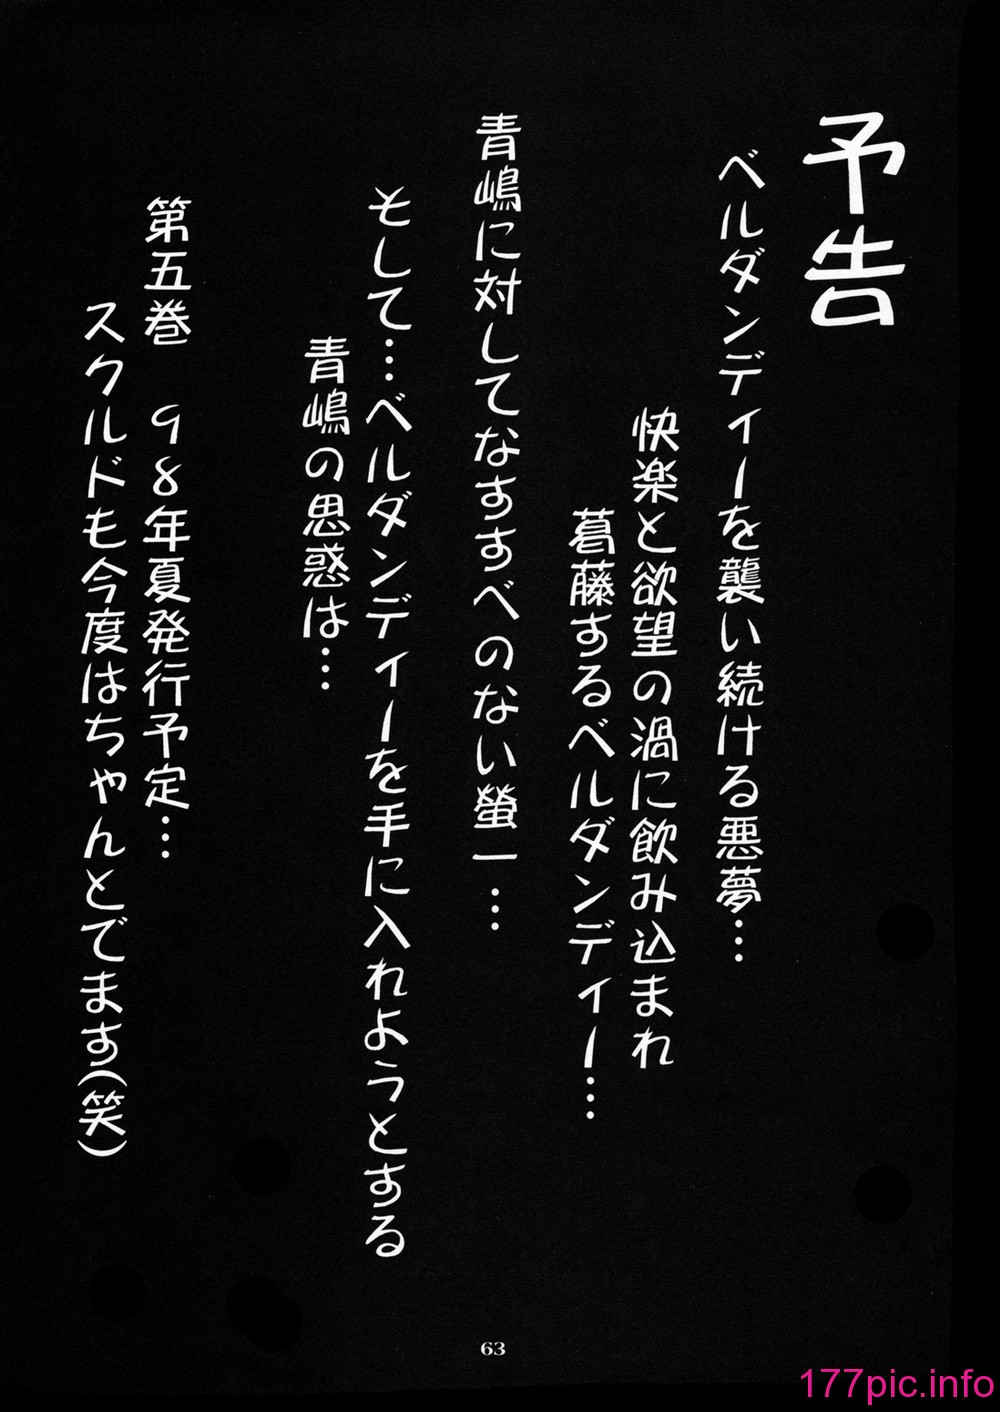 予告
ベルダンディーを襲い続ける悪夢…
快楽と欲望の渦に飲み込まれ
葛藤するベルダンディー…
青嶋に対してなすすべのない螢一…
そして…ベルダンディーを手に入れようとする
青嶋の思惑は…
第五巻　98年夏発行予定…
スクルドも今度はちゃんとでます(笑)
63
177pic.info